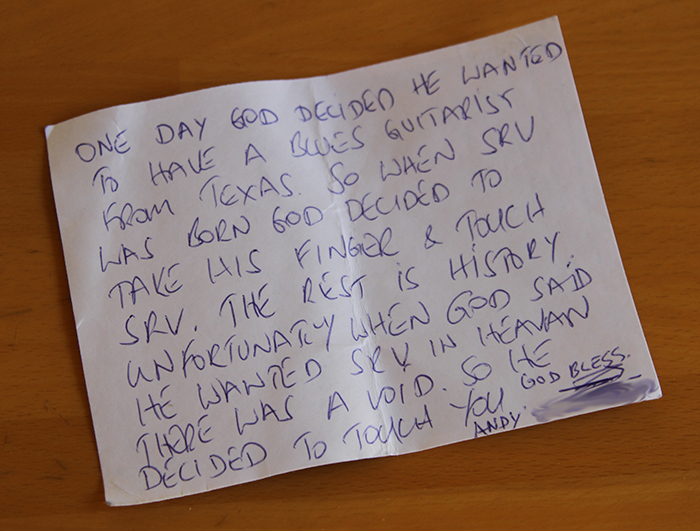 ONE DAY GOD DECIDED HE WANTED
TO HAVE A BLUES GUITARIST
FROM TEXAS. SO WHEN SRV
WAS BORN GOD DECIDED TO
TAKE HIS FINGER & TOUCH
SRV. THE REST IS HISTORY.
UNFORTUNATLY WHEN GOD SAID
HE WANTED SRV IN HEAVAN
THERE WAS A VOID. SO HE
DECIDED TO TOUCH YOU
GOD BLESS.
ANDY